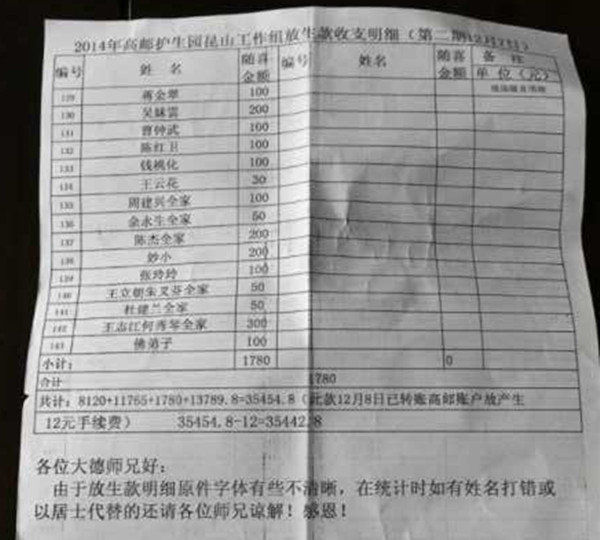 2014年高邮护生园昆山工作组放生款收支明细（第二期12月7日）
编号 姓 名 随喜金额 编号 姓名 随喜金额 备 注 单 位（元）
129 蒋金翠 100
130 吴妹雲 200
131 曹钟武 100
132 陈红卫 100
133 钱桃化 100
134 王云花 30
135 周建兴全家 100
136 余永生全家 50
137 陈杰全家 200
138 妙小 200
139 张玲玲 100
140 王立朝朱叉芬全家 50
141 杜健兰全家 50
142 王志江何秀琴全家 300
143 佛弟子 100
小计： 1780 0
合计 1780
共计：8120+11765+1780+13789.8=35454.8（此款12月8日已转账高邮账户放产生
12元手续费） 35454.8-12=35442.8
各位大德师兄好：
由于放生款明细原件字体有些不清晰，在统计时如有姓名打错或
以居士代替的还请各位师兄谅解！感恩！